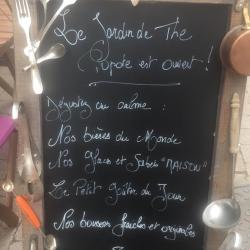 Le Jardin de Thé
Popote est ouvert !
Dégustez au calme :
Nos bières du Monde
Nos glaces et Sablés "MAISON"
Le Petit goûter du Jour
Nos boissons fraîches et originales